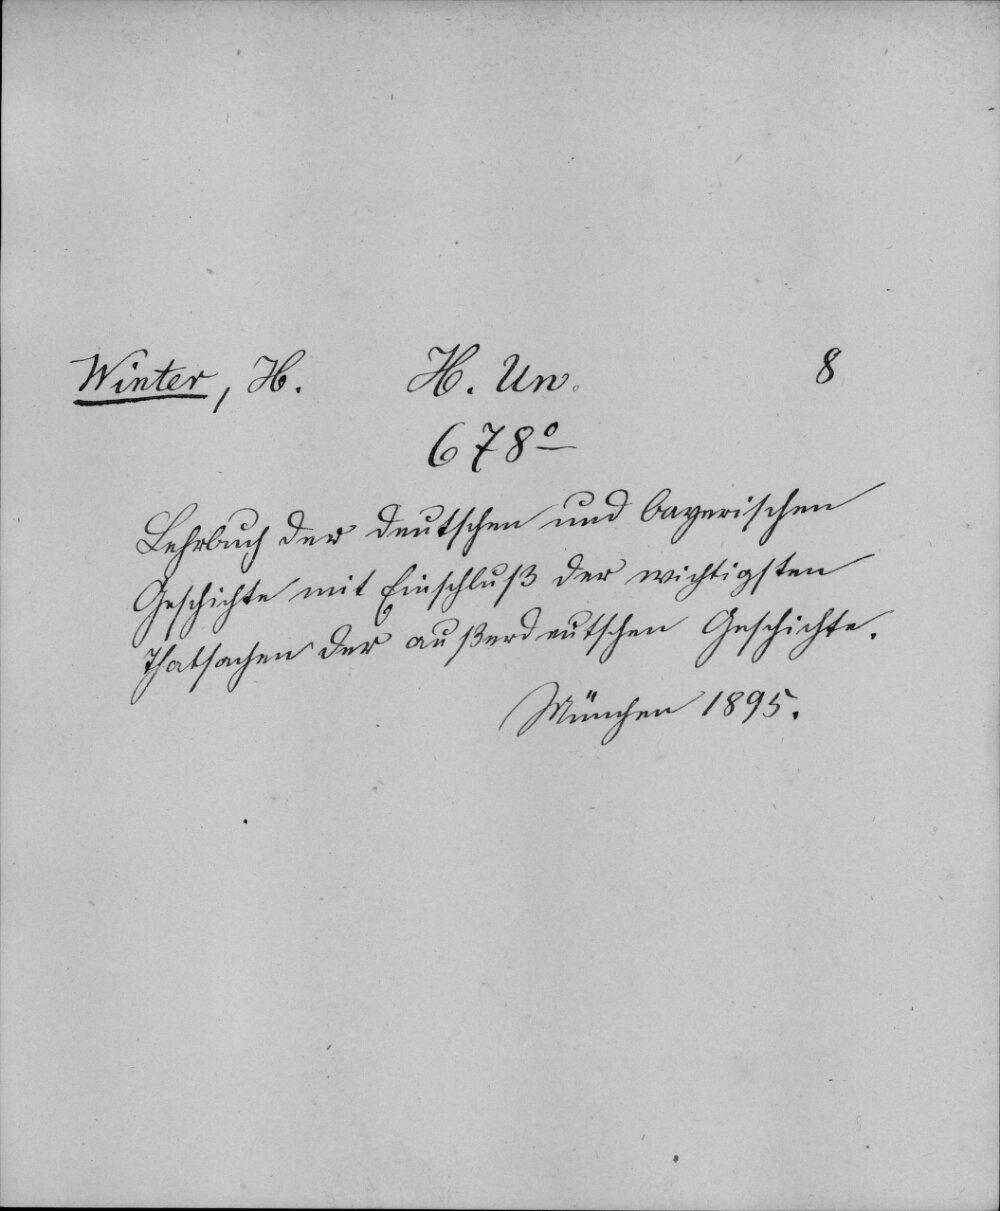 Winter, H. H. Un. 8
678º
Lehrbuch der deutschen und bayerischen
Geschichte mit Einschluß der wichtigsten
Thatsachen der außerdeutschen Geschichte.
München 1895.